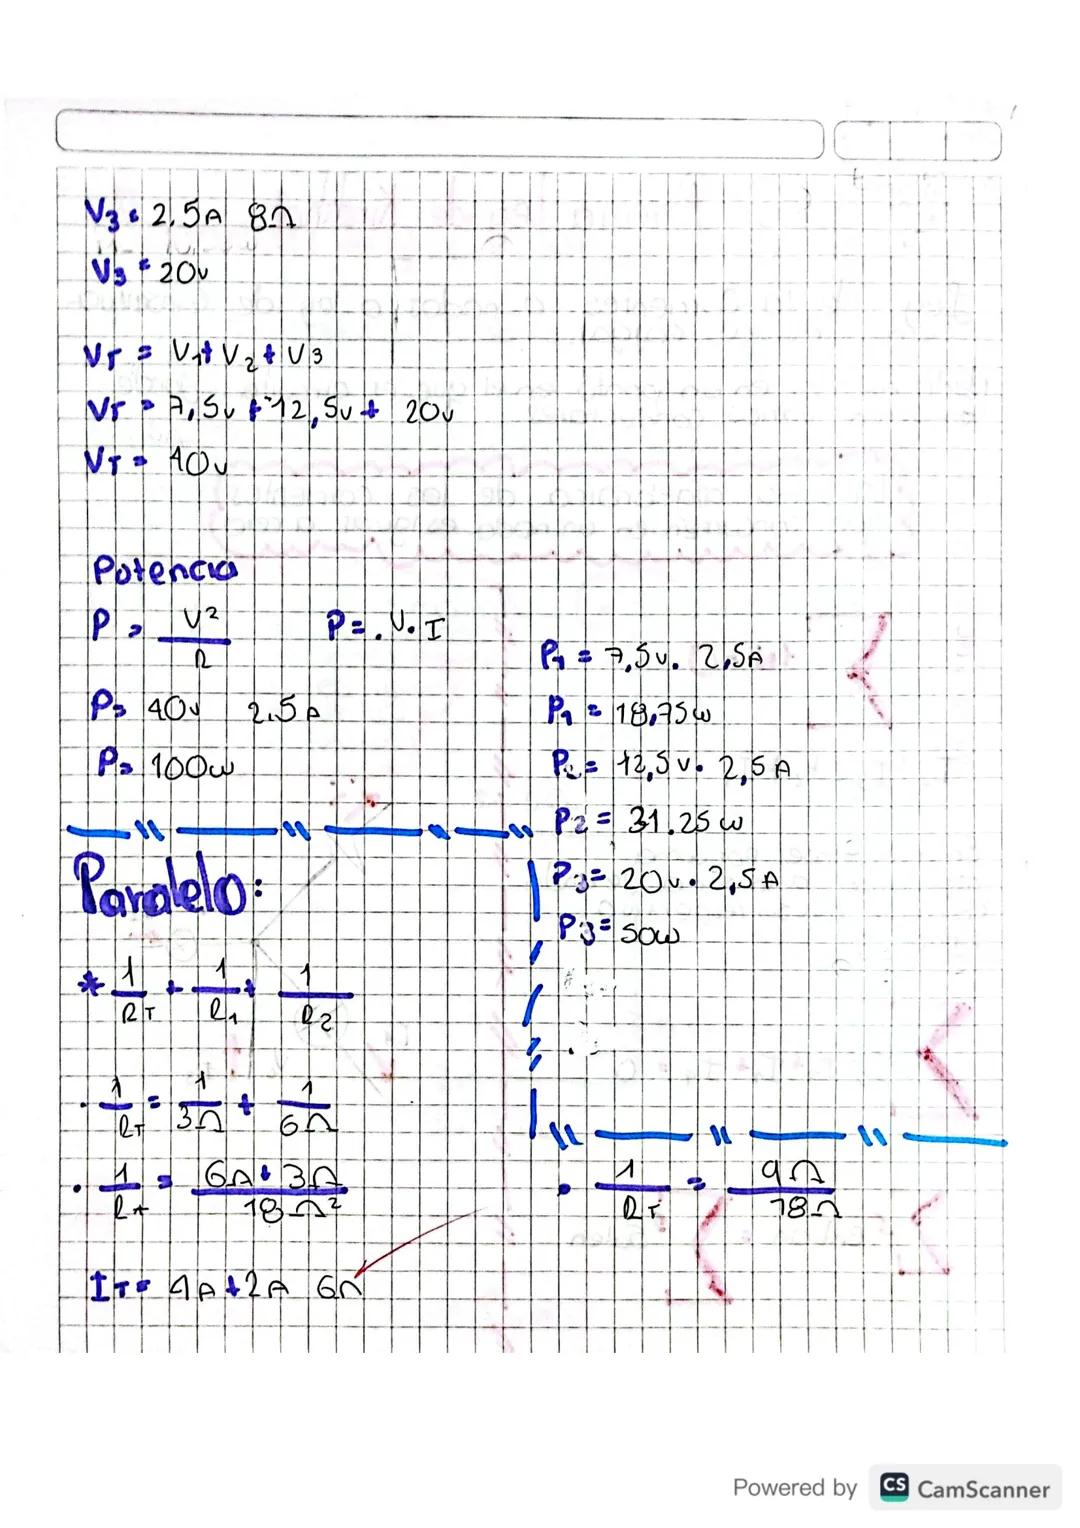 V3 = 2.5A 8Ω
V3 = 20v
VT = V1 + V2 + V3
VT = 7,5v + 12,5v + 20v
VT = 40v
Potencia
P = V² / R
P = . V . I
P = 40v 2.5A
P = 100w
P1 = 7,5v . 2,5A
P1 = 18,75w
P2 = 12,5v . 2,5A
P2 = 31.25w
P3 = 20v . 2,5A
P3 = 50w
Paralelo:
* 1/RT + 1/R1 + 1/R2
. 1/RT = 1/3Ω + 1/6Ω
. 1/RT = 6Ω + 3Ω / 18Ω²
. 1/RT = 9Ω / 18Ω
IT = 4A + 2A 6Ω
Powered by CS CamScanner